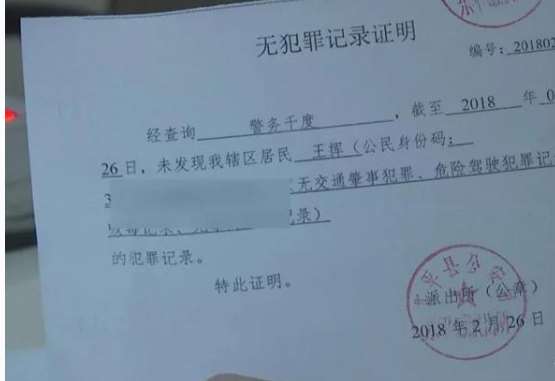 无犯罪记录证明
编号：201802
经查询 警务千度 ，截至 2018 年 0
26日，未发现我辖区居民 王挥（公民身份码：
3 无交通肇事犯罪、危险驾驶犯罪记
录）
的犯罪记录。
特此证明。
派出所（公章）
2018年2月26日